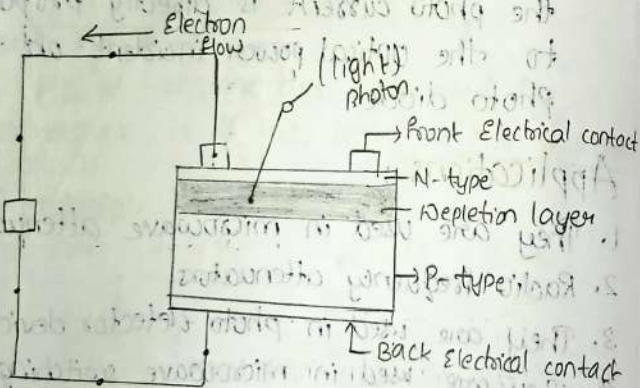 Electron
flow
(light)
photon
Front Electrical contact
N-type
Depletion layer
P-type
Back Electrical contact